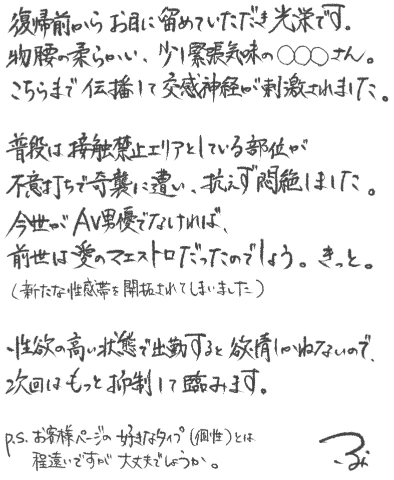 復帰前から お目に留めていただき 光栄です。
物腰の柔らかい、少し緊張気味の ○○○さん。
こちらまで 伝播して 交感神経が刺激されました。
普段は 接触禁止エリアとしている部位が
不意打ちで奇襲に遭い、抗えず悶絶しました。
今世が AV男優でなければ、
前世は愛のマエストロだったのでしょう。きっと。
(新たな性感帯を開拓されてしまいました)
性欲の高い状態で出勤すると 欲情しかねないので、
次回は もっと 抑制して 臨みます。
p.s. お客様ページの 好きなタイプ(個性)とは
程遠いですが 大丈夫でしょうか。